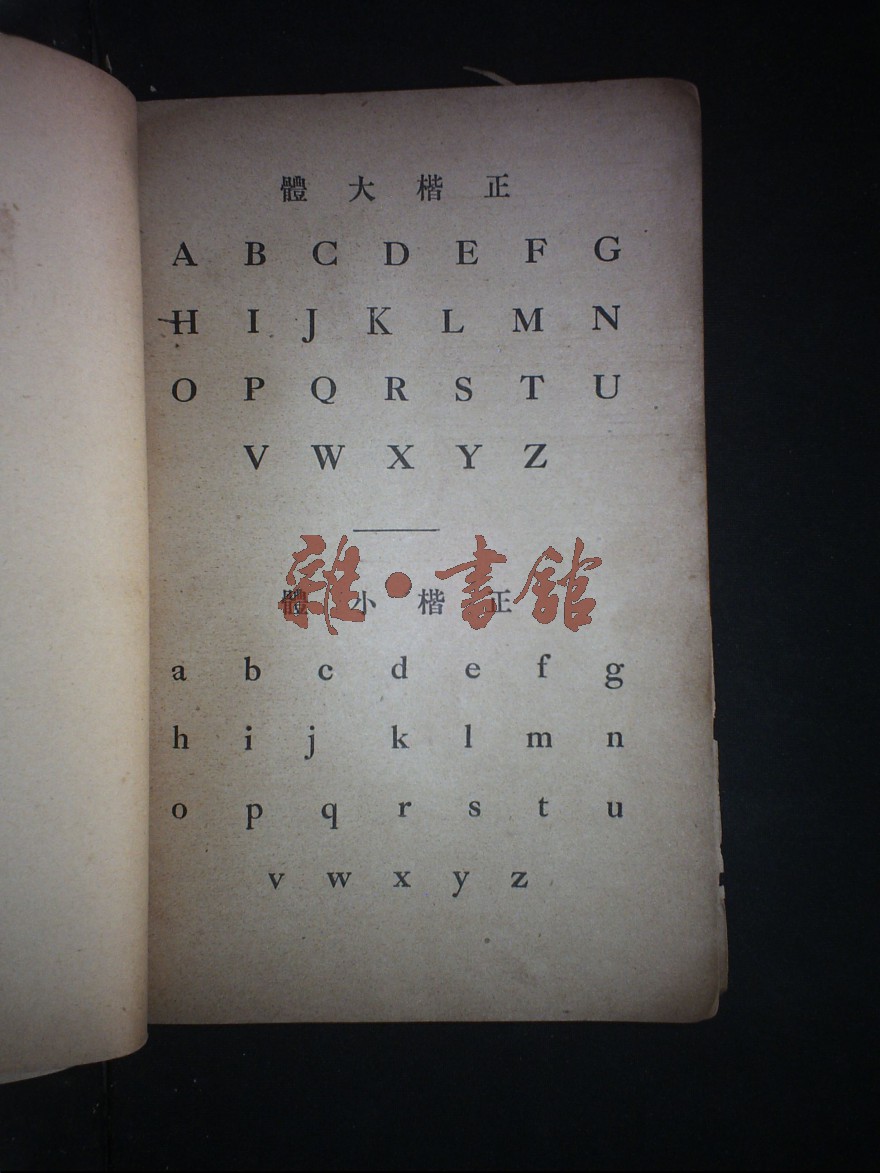 正楷大體
A B C D E F G
H I J K L M N
O P Q R S T U
V W X Y Z
雜·書館
正楷小體
a b c d e f g
h i j k l m n
o p q r s t u
v w x y z